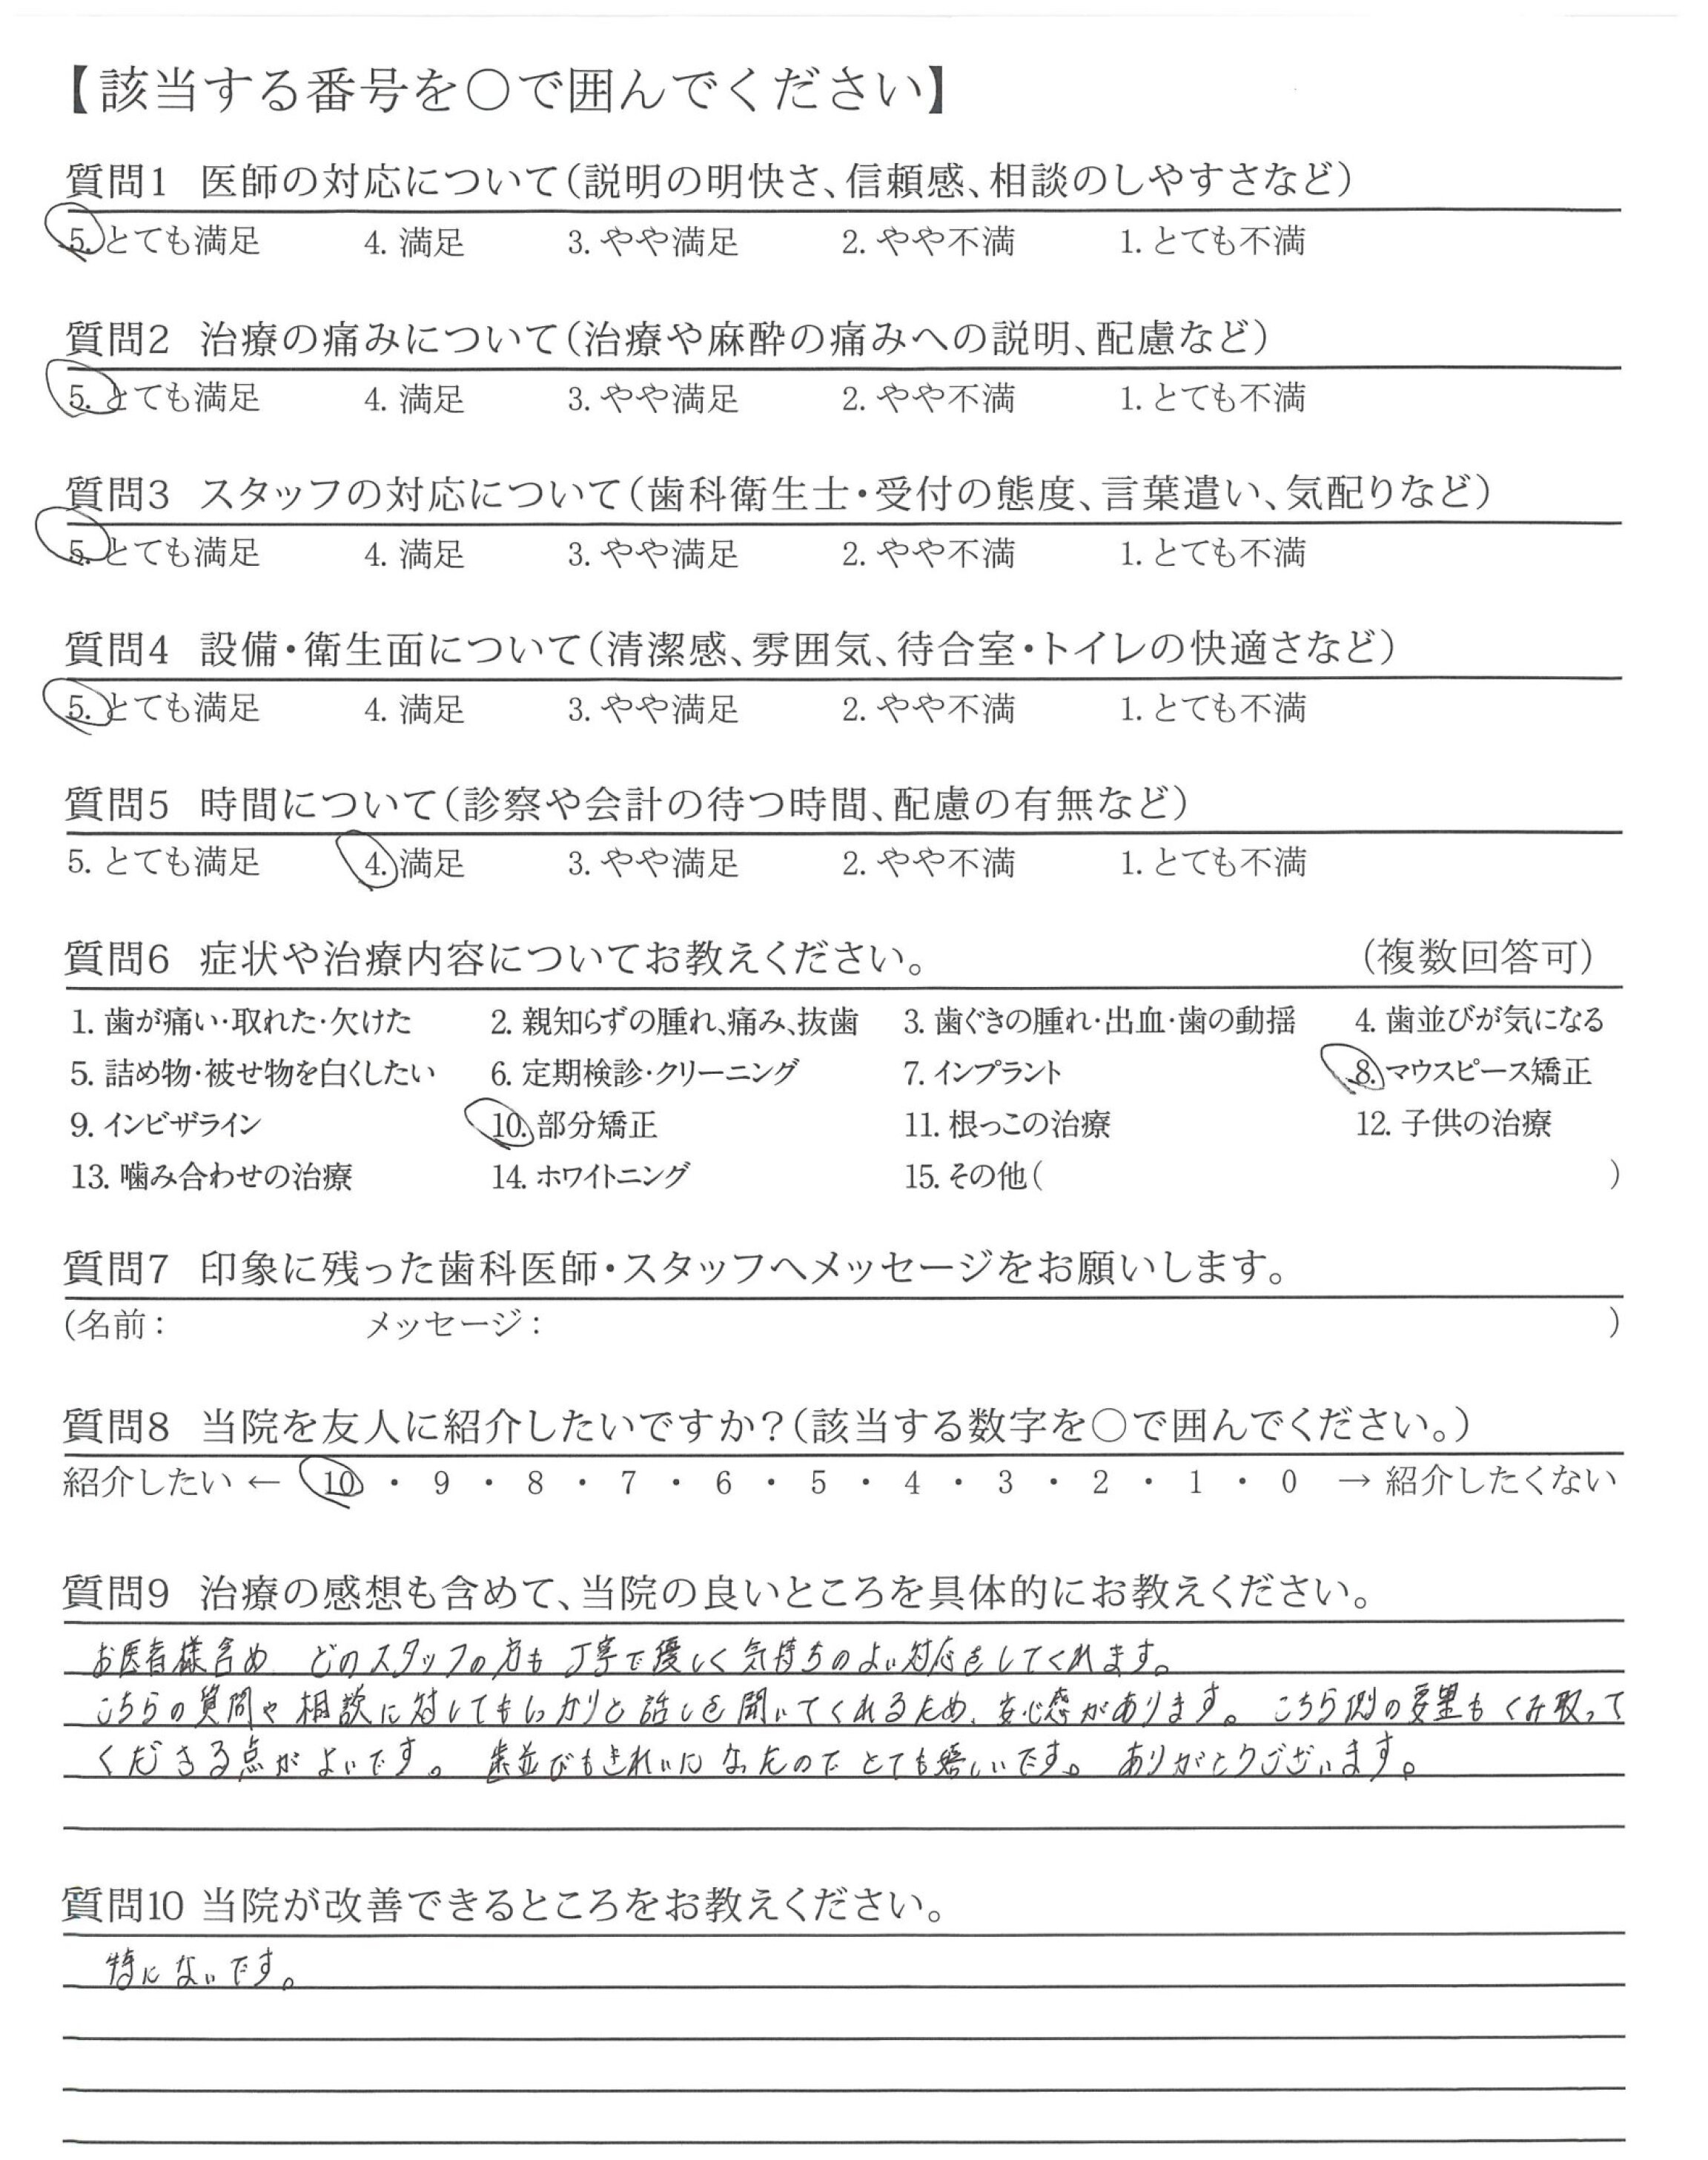 【該当する番号を〇で囲んでください】
質問1 医師の対応について（説明の明快さ、信頼感、相談のしやすさなど）
5. とても満足 4. 満足 3. やや満足 2. やや不満 1. とても不満
質問2 治療の痛みについて（治療や麻酔の痛みへの説明、配慮など）
5. とても満足 4. 満足 3. やや満足 2. やや不満 1. とても不満
質問3 スタッフの対応について（歯科衛生士・受付の態度、言葉遣い、気配りなど）
5. とても満足 4. 満足 3. やや満足 2. やや不満 1. とても不満
質問4 設備・衛生面について（清潔感、雰囲気、待合室・トイレの快適さなど）
5. とても満足 4. 満足 3. やや満足 2. やや不満 1. とても不満
質問5 時間について（診察や会計の待つ時間、配慮の有無など）
5. とても満足 4. 満足 3. やや満足 2. やや不満 1. とても不満
質問6 症状や治療内容についてお教えください。 （複数回答可）
1. 歯が痛い・取れた・欠けた 2. 親知らずの腫れ、痛み、抜歯 3. 歯ぐきの腫れ・出血・歯の動揺 4. 歯並びが気になる
5. 詰め物・被せ物を白くしたい 6. 定期検診・クリーニング 7. インプラント 8. マウスピース矯正
9. インビザライン 10. 部分矯正 11. 根っこの治療 12. 子供の治療
13. 噛み合わせの治療 14. ホワイトニング 15. その他（ ）
質問7 印象に残った歯科医師・スタッフへメッセージをお願いします。
（名前： メッセージ： ）
質問8 当院を友人に紹介したいですか？（該当する数字を〇で囲んでください。）
紹介したい ← 10 ・ 9 ・ 8 ・ 7 ・ 6 ・ 5 ・ 4 ・ 3 ・ 2 ・ 1 ・ 0 → 紹介したくない
質問9 治療の感想も含めて、当院の良いところを具体的にお教えください。
お医者様含め どのスタッフの方も 丁寧で優しく気持ちのよい対応をしてくれます。
こちらの質問や相談に対してもしっかりと話しを聞いてくれるため、安心感があります。 こちら側の要望もくみ取って
くださる点がよいです。 歯並びもきれいになったのでとても嬉しいです。 ありがとうございます。
質問10 当院が改善できるところをお教えください。
特にないです。